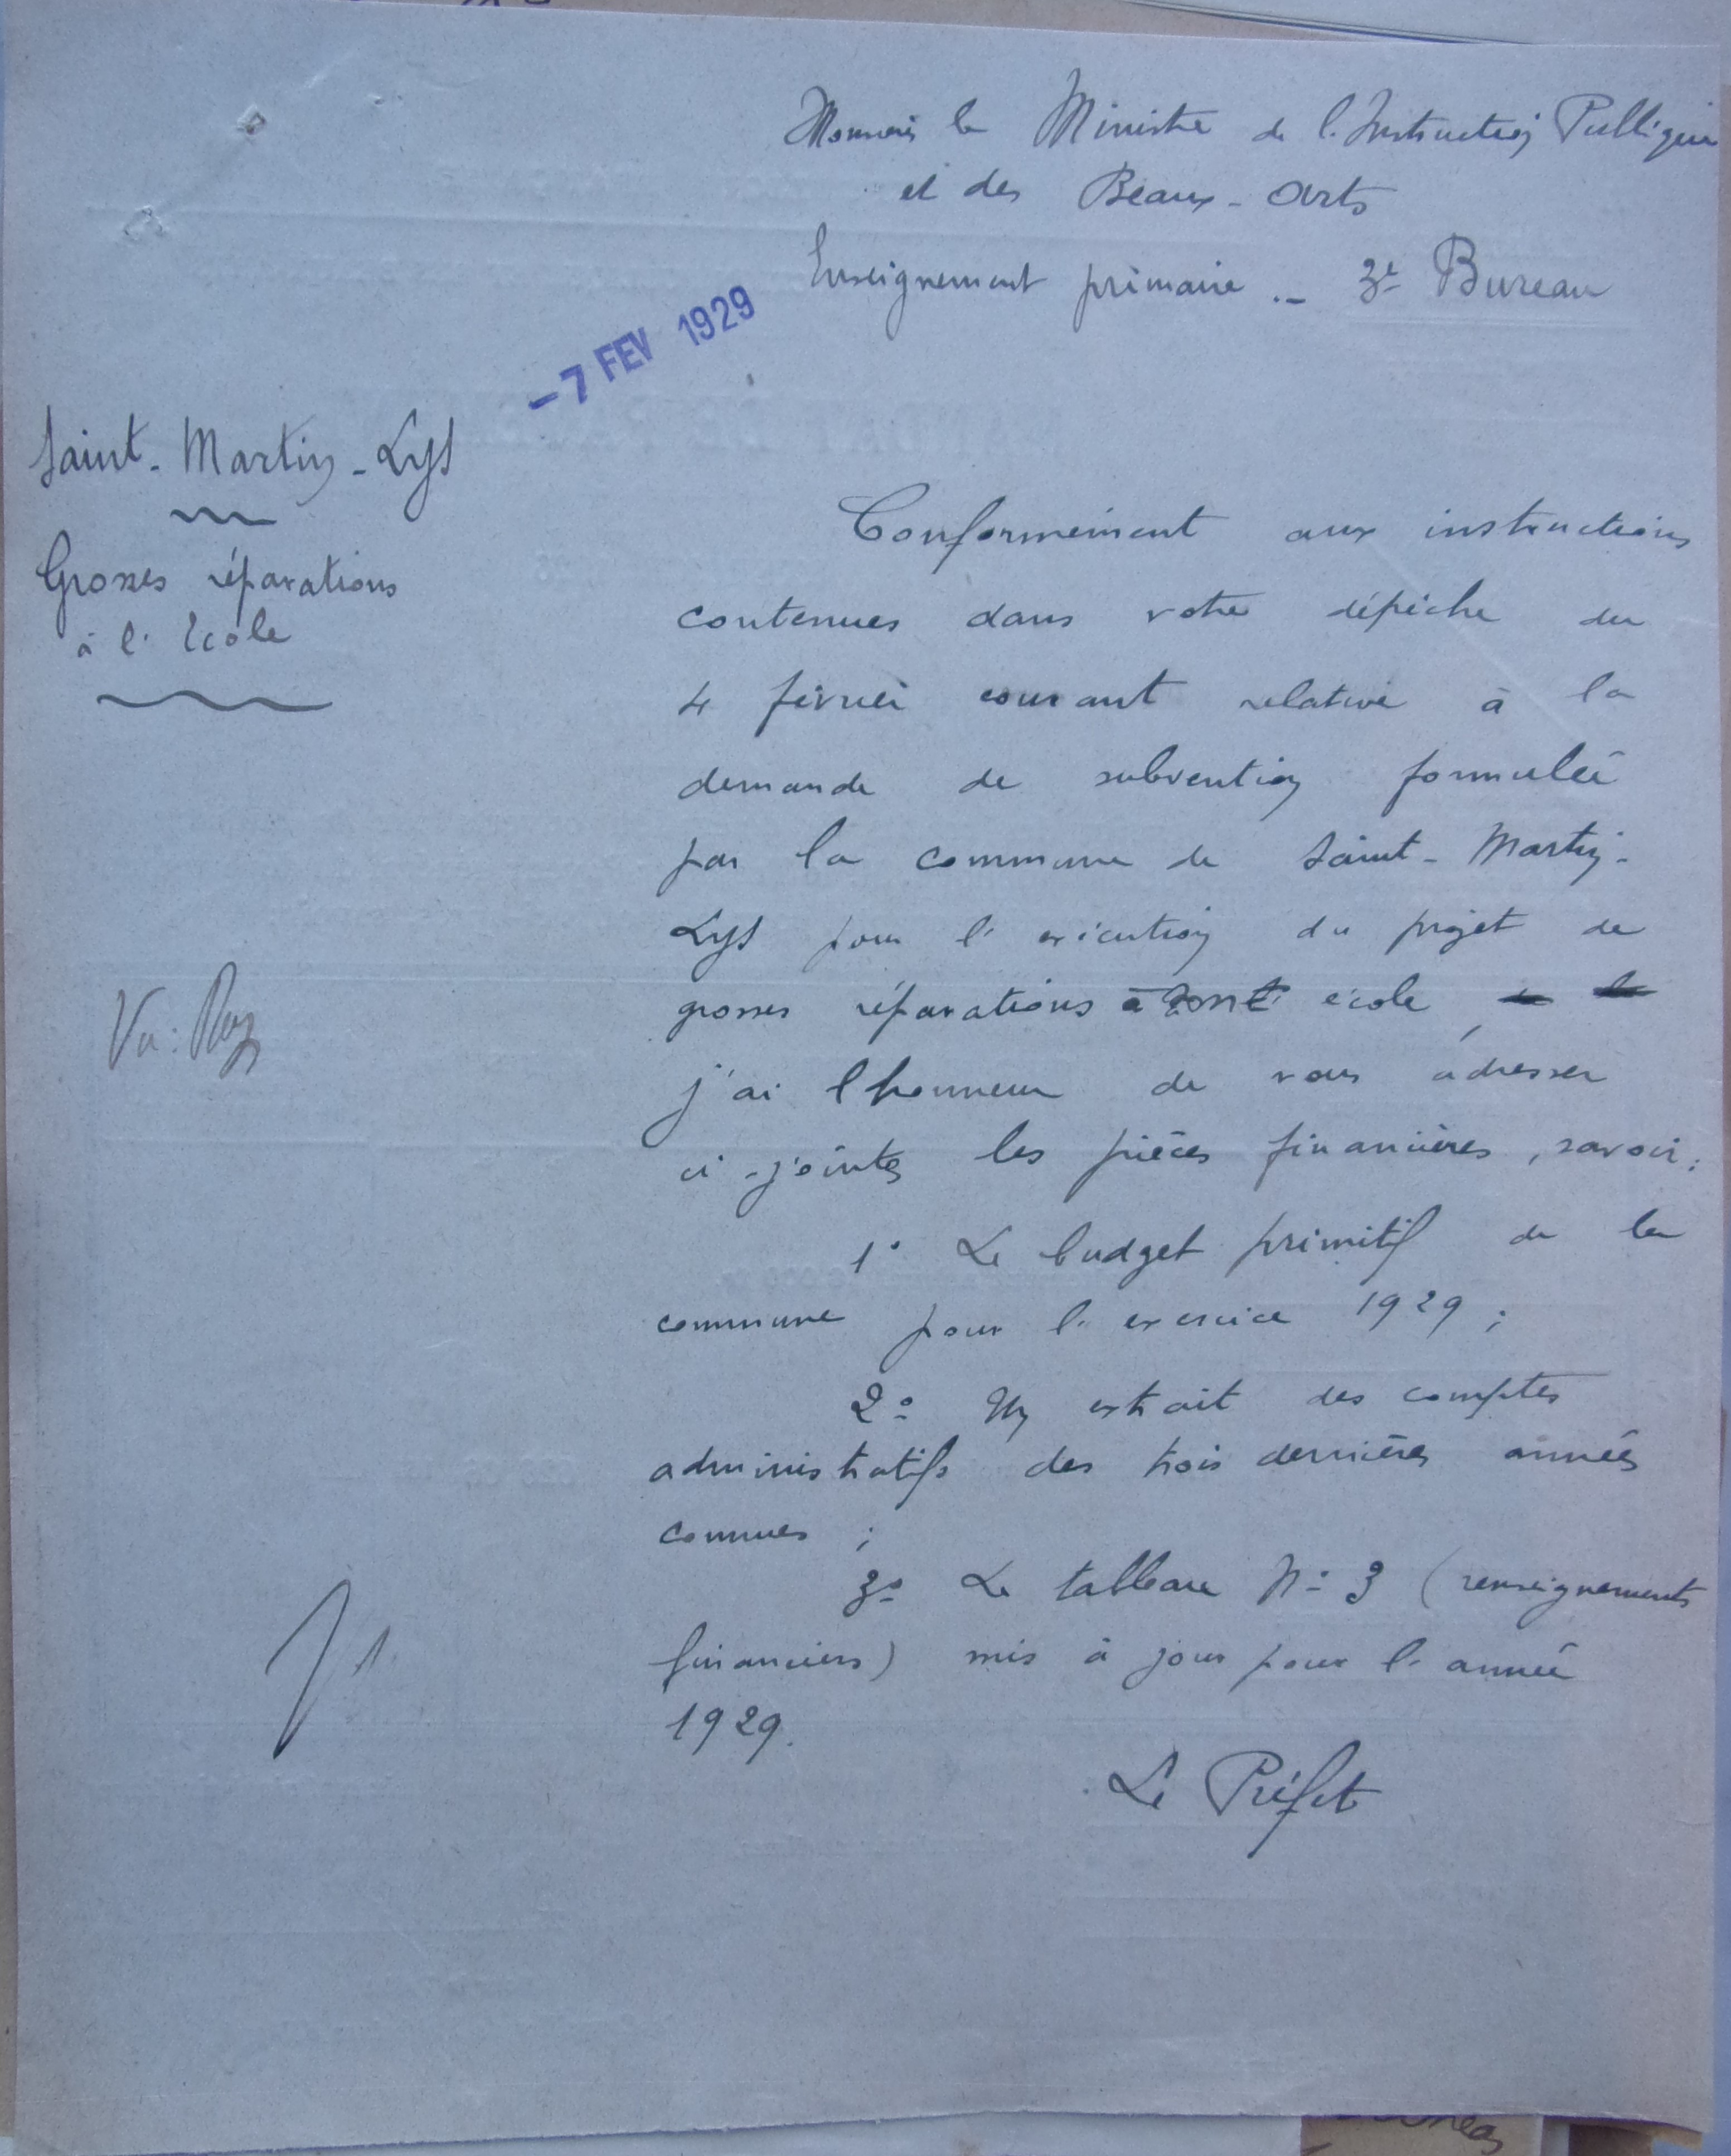 Monsieur le Ministre de l'Instruction Publique
et des Beaux-Arts
Enseignement primaire. - 3e Bureau
- 7 FEV 1929
Saint-Martin-Lys
Grosses réparations
à l'école
Conformément aux instructions
contenues dans votre dépêche du
4 février courant relative à la
demande de subvention formulée
par la commune de Saint-Martin-
Lys pour l'exécution du projet de
grosses réparations à école
j'ai l'honneur de vous adresser
ci-jointes les pièces financières, savoir:
1° Le budget primitif de la
commune pour l'exercice 1929;
2° Un extrait des comptes
administratifs des trois dernières années
connues;
3° Le tableau N° 3 (renseignements
financiers) mis à jour pour l'année
1929.
Vu:
Le Préfet